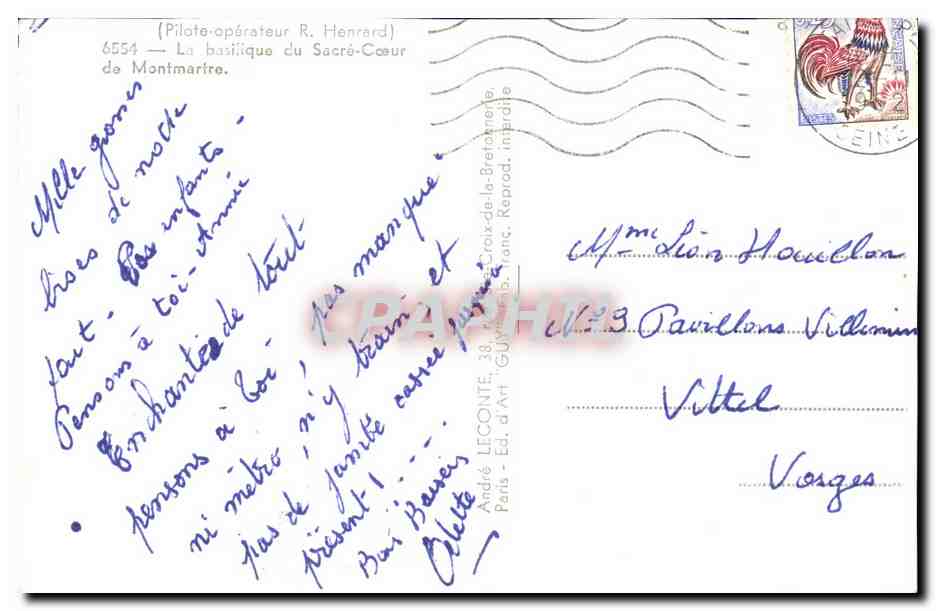 (Pilote-opérateur R. Henrard)
6554 — La basilique du Sacré-Cœur
de Montmartre.
Mille grosses
bises de notre
part - Les enfants
Pensons à toi - Annie
Enchantée de tout -
pensons à toi - pas manqué
ni métro, n'y train, et
pas de jambe cassée jusqu'à
présent ! ....
Bons Baisers
Odette
André LECONTE, 38, Croix-de-la-Bretonnerie,
Paris - Ed. d'Art "GUY" franç. Reprod. interdite
CPAPHIL
SEINE
Mme Léon Houillon
No 9 Pavillons Villemin
Vittel
Vosges